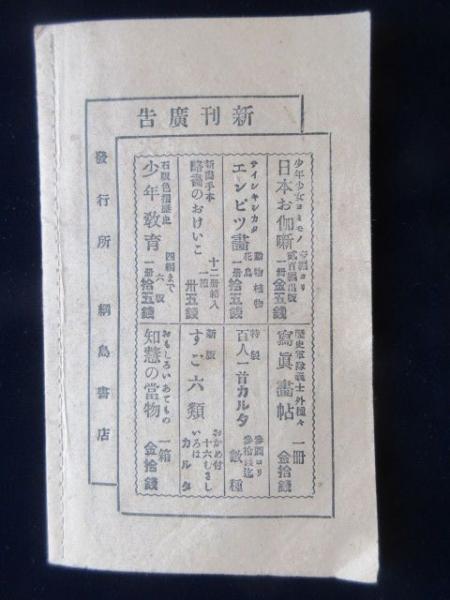 新刊廣告
少年少女ヨミモノ
日本お伽噺
一冊金五錢
歴史軍隊義士外種々
寫眞畫帖
一冊金拾錢
テイシキシカタ
エンピツ畫
動物植物
花鳥
一冊拾五錢
特製
百人一首カルタ
數種
新圖手本
略畫のおけいこ
十二冊箱入
一箱
卅五錢
新版
すご六類
おかめ付
十六むさし
いろはカルタ
石版色摺歴史
少年教育
四編まで
六版
一冊拾五錢
おもしろいあてもの
知慧の當物
一箱
金拾錢
發行所 綱島書店